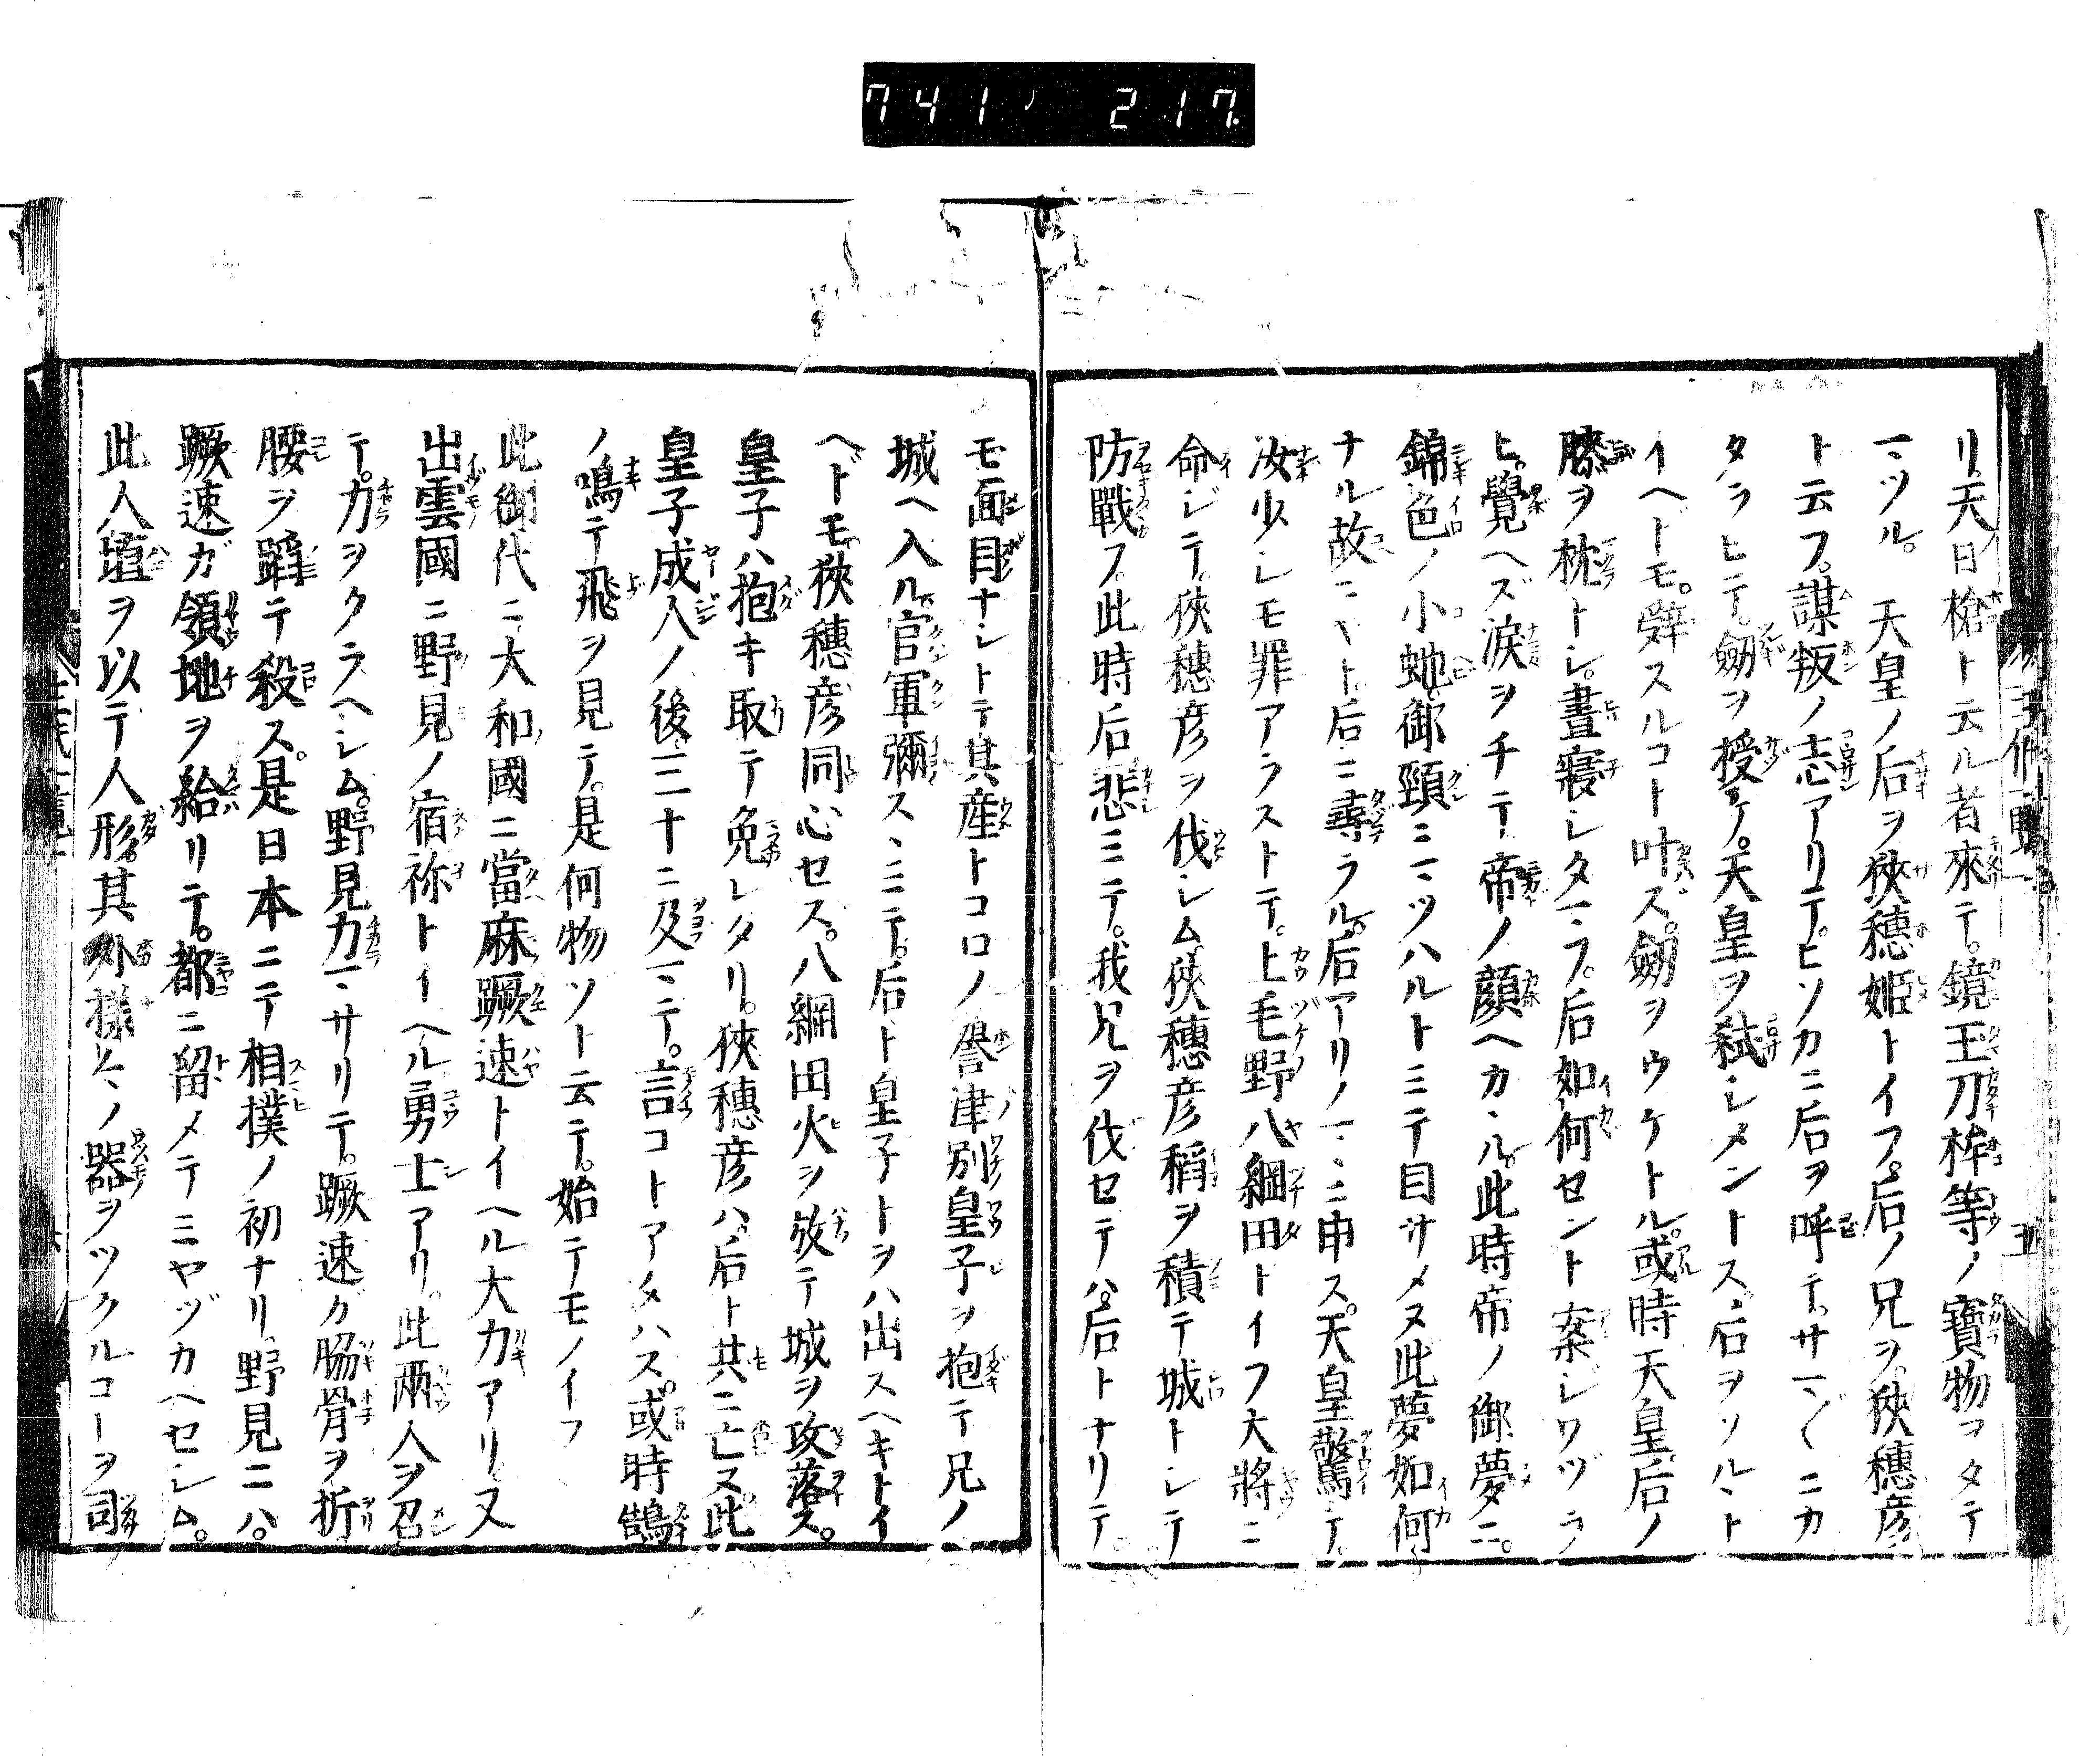 741 217
リ。天日槍ト云ル者來テ。鏡玉刀桙等ノ寶物ヲタテ
マツル。天皇ノ后ヲ狹穗姫トイフ。后ノ兄ヲ。狹穗彦
ト云フ。謀叛ノ志アリテ。ヒソカニ后ヲ呼テ。サマ〴〵ニカ
タラヒテ。劔ヲ授ケ。天皇ヲ弑シメントス。后ヲソルヽト
イヘトモ。辭スルコト叶ス。劔ヲウケトル。或時天皇。后ノ
膝ヲ枕トシ。晝寢シタマフ。后如何セント案シワヅラ
ヒ。覺ヘズ涙ヲチテ帝ノ顔ヘカヽル。此時帝ノ御夢ニ。
錦色ノ小虵。御頸ニマツハルトミテ目サメヌ此夢如何
ナル故ニヤト。后ニ尋ラル。后アリノマヽニ申ス。天皇驚テ。
汝少シモ罪アラストテ。上毛野八綱田トイフ大將ニ
命シテ。狹穗彦ヲ伐シム。狹穗彦稻ヲ積テ城トシテ
防戰フ。此時后悲ミテ。我兄ヲ伐セテハ。后トナリテ
モ面目ナシトテ其産トコロノ譽津別皇子ヲ抱テ兄ノ
城ヘ入ル。官軍彌スヽミテ。后ト皇子トヲハ出スヘキトイ
ヘドモ。狹穗彦同心セス。八綱田火ヲ放テ城ヲ攻落ス。
皇子ハ抱キ取テ免レタリ。狹穗彦ハ。后ト共ニ亡ヌ此
皇子成人ノ後。三十ニ及マテ。言コトアタハス。或時鵠
ノ鳴テ飛ヲ見テ。是何物ソト云テ。始テモノイフ
此御代ニ大和國ニ當麻蹶速トイヘル大力アリ又
出雲國ニ野見ノ宿祢トイヘル勇士アリ。此兩人ヲ召
テ。力ヲクラヘシム。野見力マサリテ。蹶速カ脇骨ヲ折
腰ヲ蹈テ殺ス。是日本ニテ相撲ノ初ナリ。野見ニハ。
蹶速ガ領地ヲ給リテ。都ニ留メテミヤヅカヘセシム。
此人埴ヲ以テ人形。其外樣々ノ器ヲツクルコトヲ司